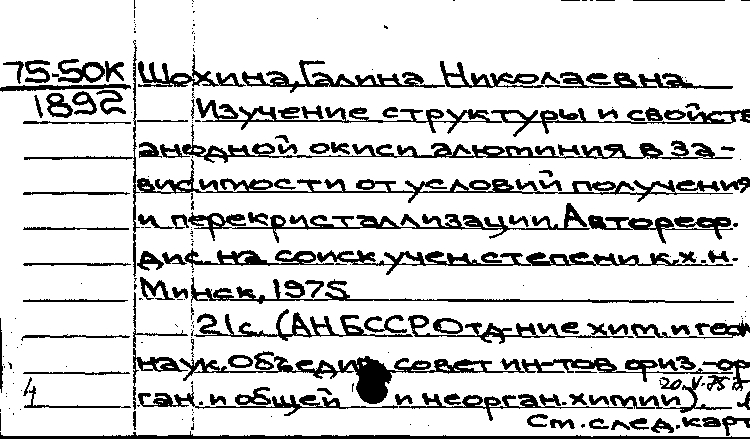 75-50К Шохина, Галина Николаевна
1892 Изучение структуры и свойств
анодной окиси алюминия в за-
висимости от условий получения
и перекристаллизации. Автореф.
дис. на соиск. учен. степени к.х.н.
Минск, 1975
21с. (АН БССР. Отд-ние хим. и геол
наук. Объедин совет ин-тов физ.-ор
20.V.75
4 ган. и общей и неорган. химии).
См. след. карт